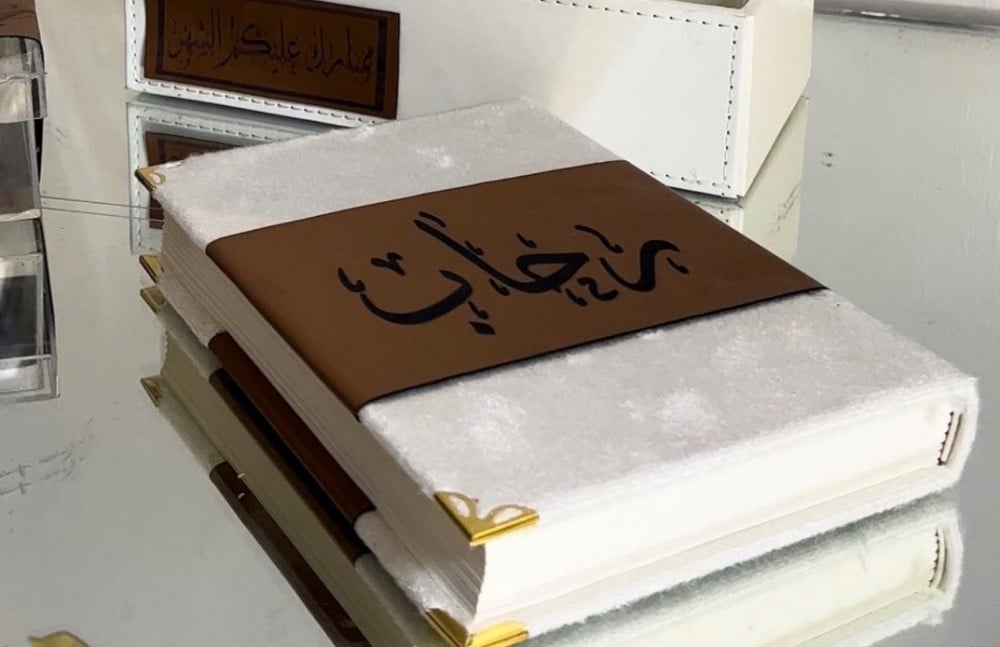 مبارك عليكم الشهر
رحاب